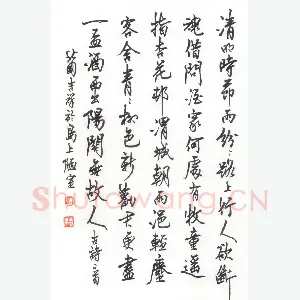 清明時節雨紛〻路上行人欲斷
魂借問酒家何處有牧童遥
指杏花邨渭城朝雨浥輕塵
客舍青〻柳色新勸君更盡
一盃酒西出陽關無故人 古詩二首
吉祥於島上陋室
Shufawang.CN